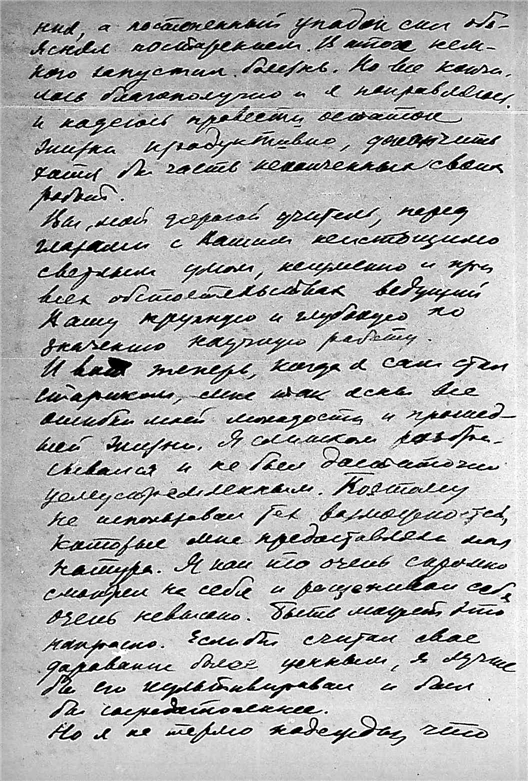 ния, а постепенный упадок сил объ-
яснял постарением. В итоге нем-
ного запустил болезнь. Но все кончи-
лось благополучно и я поправляюсь
и надеюсь провести остаток
жизни продуктивно, докончить
хотя бы часть неконченных своих
работ.
Вы, мой дорогой учитель, перед
глазами с Вашим неистощимо
светлым умом, неизменно и при
всех обстоятельствах ведущий
Вашу крупную и глубокую по
значению научную работу.
И теперь, когда я сам стал
стариком, мне так ясны все
ошибки моей молодости и прошед-
шей жизни. Я слишком разбра-
сывался и не был достаточно
целеустремленным. Поэтому
не использовал тех возможностей,
которые мне предоставляла моя
натура. Я как то очень скромно
смотрел на себя и расценивал себя
очень невысоко. Быть может это
напрасно. Если бы считал свое
дарование более ценным, я лучше
бы его культивировал и был
бы сосредоточеннее.
Но я не теряю надежды, что